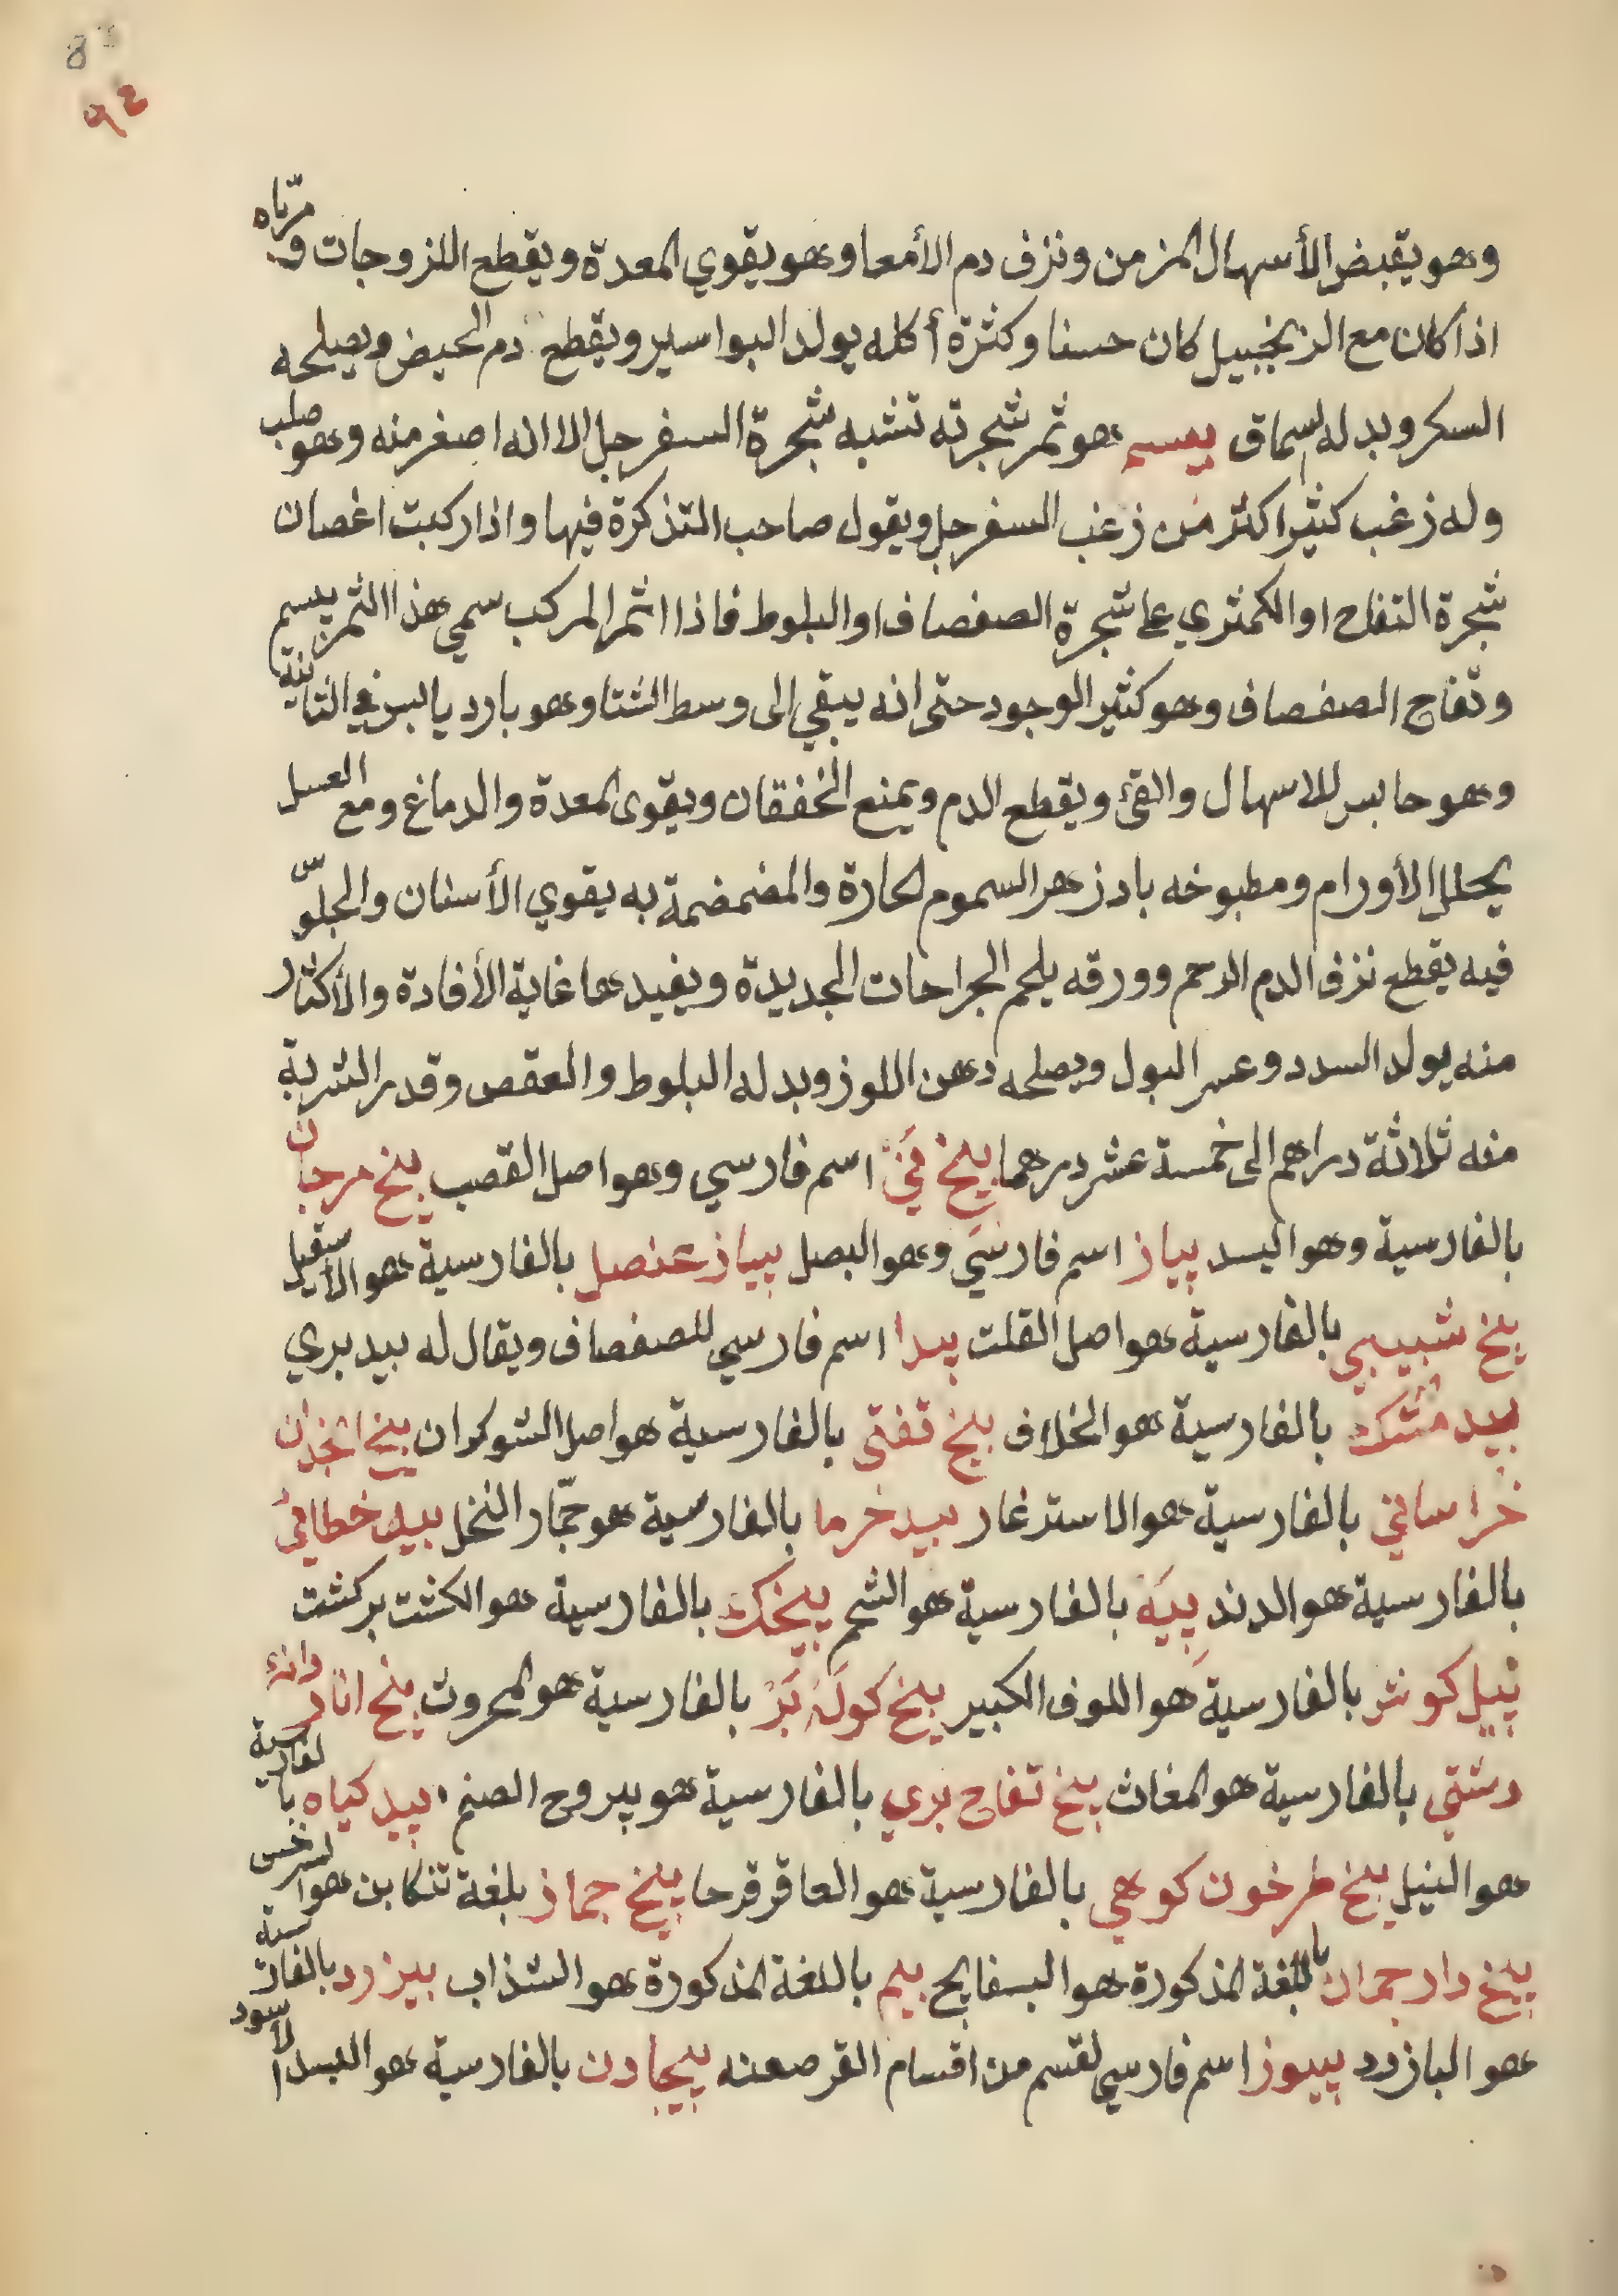 8
٩٤
وهو يقبض الأسهال المزمن ونزف دم الأمعا وهو يقوي المعدة ويقطع اللزوجات ومرّباه
اذا كان مع الزنجبيل كان حسنا وكثرة أكله يولد البواسير ويقطع دم الحيض ويصلحه
السكر وبدله السماق بيسم هو ثمر شجرته تشبه شجرة السفرجل الا انه اصغر منه وهو صلب
وله زغب كثير اكثر من زغب السفرجل ويقول صاحب التذكرة فيها واذا ركبت اغصان
شجرة التفاح او الكمثري على شجرة الصفصاف او البلوط فاذا اثمر المركب سمي هذا الثمر بيسم
وتفاح الصفصاف وهو كثير الوجود حتى انه يبقي الى وسط الشتا وهو بارد يابس في الثانية
وهو حابس للاسهال والقئ ويقطع الدم ويمنع الخفقان ويقوى المعدة والدماغ ومع العسل
يحلل الأورام ومطبوخه بادزهر السموم الحارة والمضمضمة به يقوي الأسنان والجلوس
فيه يقطع نزف الدم الرحم وورقه يلحم الجراحات الجديدة ويفيدها غاية الأفادة والأكثار
منه يولد السدد وعسر البول ويصلحه دهن اللوز وبدله البلوط والعقص وقدر الشربة
منه ثلاثة دراهم الى خمسة عشر درهما بيخ ني اسم فارسي وهو اصل القصب بيخ مرجان
بالفارسية وهو البسد پياز اسم فارسي وهو البصل پياز عنصل بالفارسية هو الأسقيل
بيخ شبيبي بالفارسية هو اصل القلت بيدا اسم فارسي للصفصاف ويقال له بيد بري
بيد مشك بالفارسية هو الخلاف بيخ تفتى بالفارسية هو اصل الشوكران بيخ انجدان
خراساني بالفارسية هو الاسترغار بيد خرما بالفارسية هو جمّار النخل بيد خطائي
بالفارسية هو الدند پيَه بالفارسية هو الشحم بيخك بالفارسية هو الكشت بر كشت
پيل كوش بالفارسية هو اللوف الكبير بيخ كولَه بَر بالفارسية هو المحروث بيخ انار دانه
دشتي بالفارسية هو المغاث بيخ تفاح بري بالفارسية هو يبروح الصنم بيد كياه بالفارسية
هو النيل بيخ طرخون كوهي بالفارسية هو العاقرقرحا بيخ جماز بلغة تنكابن هو السرخس
بيخ دار جمان باللغة المذكورة هو البسفايج بيم باللغة المذكورة هو السذاب بيزرد بالفارسية
هو البازرد بيوز اسم فارسي لقسم من اقسام القرصعنه بيجادن بالفارسية هو البسد الأسود